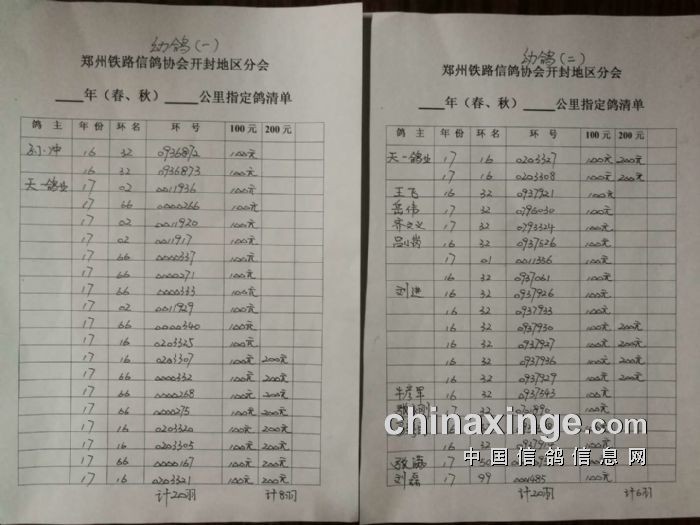 幼鸽(一)
郑州铁路信鸽协会开封地区分会
___年(春、秋)____公里指定鸽清单
鸽 主 年 份 环 名 环 号 100元 200元
孙小冲 16 32 0936872 100元
16 32 0936873 100元
天一鸽业 17 02 0011936 100元
17 66 0000266 100元
17 02 0011920 100元
17 02 0011917 100元
17 66 0000337 100元
17 66 0000271 100元
17 66 0000333 100元
17 02 0011929 100元
17 66 0000340 100元
17 16 0203325 100元
17 16 0203307 100元 200元
17 66 0000332 100元 200元
17 66 0000268 100元 200元
17 66 0000275 100元 200元
17 16 0203320 100元 200元
17 16 0203305 100元 200元
17 66 0000167 100元 200元
17 16 0203321 100元 200元
计20羽 计8羽
幼鸽(二)
郑州铁路信鸽协会开封地区分会
___年(春、秋)____公里指定鸽清单
鸽 主 年 份 环 名 环 号 100元 200元
天一鸽业 17 16 0203327 100元 200元
17 16 0203308 100元 200元
王飞 16 32 0937921 100元
岳伟 17 32 0796030 100元
齐文义 17 32 0793324 100元
吕小岗 16 32 0937526 100元
17 01 0011356 100元
16 32 0937061 100元
刘进 16 32 0937926 100元
16 32 0937933 100元
16 32 0937930 100元 200元
16 32 0937927 100元 200元
16 32 0937936 100元 200元
16 32 0937929 100元 200元
牛彦军 16 32 0937543 100元
17 32
16 32
敬涛 17
刘磊 17 99 100元
计20羽 计6羽
chinaxinge.com
中国信鸽信息网